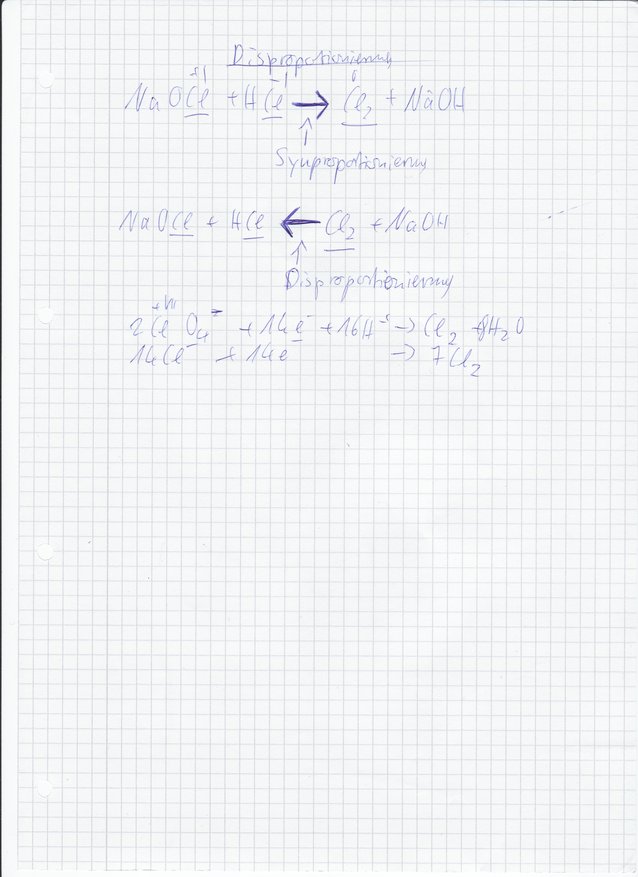 Disproportionierung
+I -I 0
NaOCl + HCl → Cl₂ + NaOH
↑
Synproportionierung
NaOCl + HCl ← Cl₂ + NaOH
↑
Disproportionierung
+VII
2ClO₄⁻ + 14e⁻ + 16H⁺ → Cl₂ + 8H₂O
14Cl⁻ + 14e → 7Cl₂